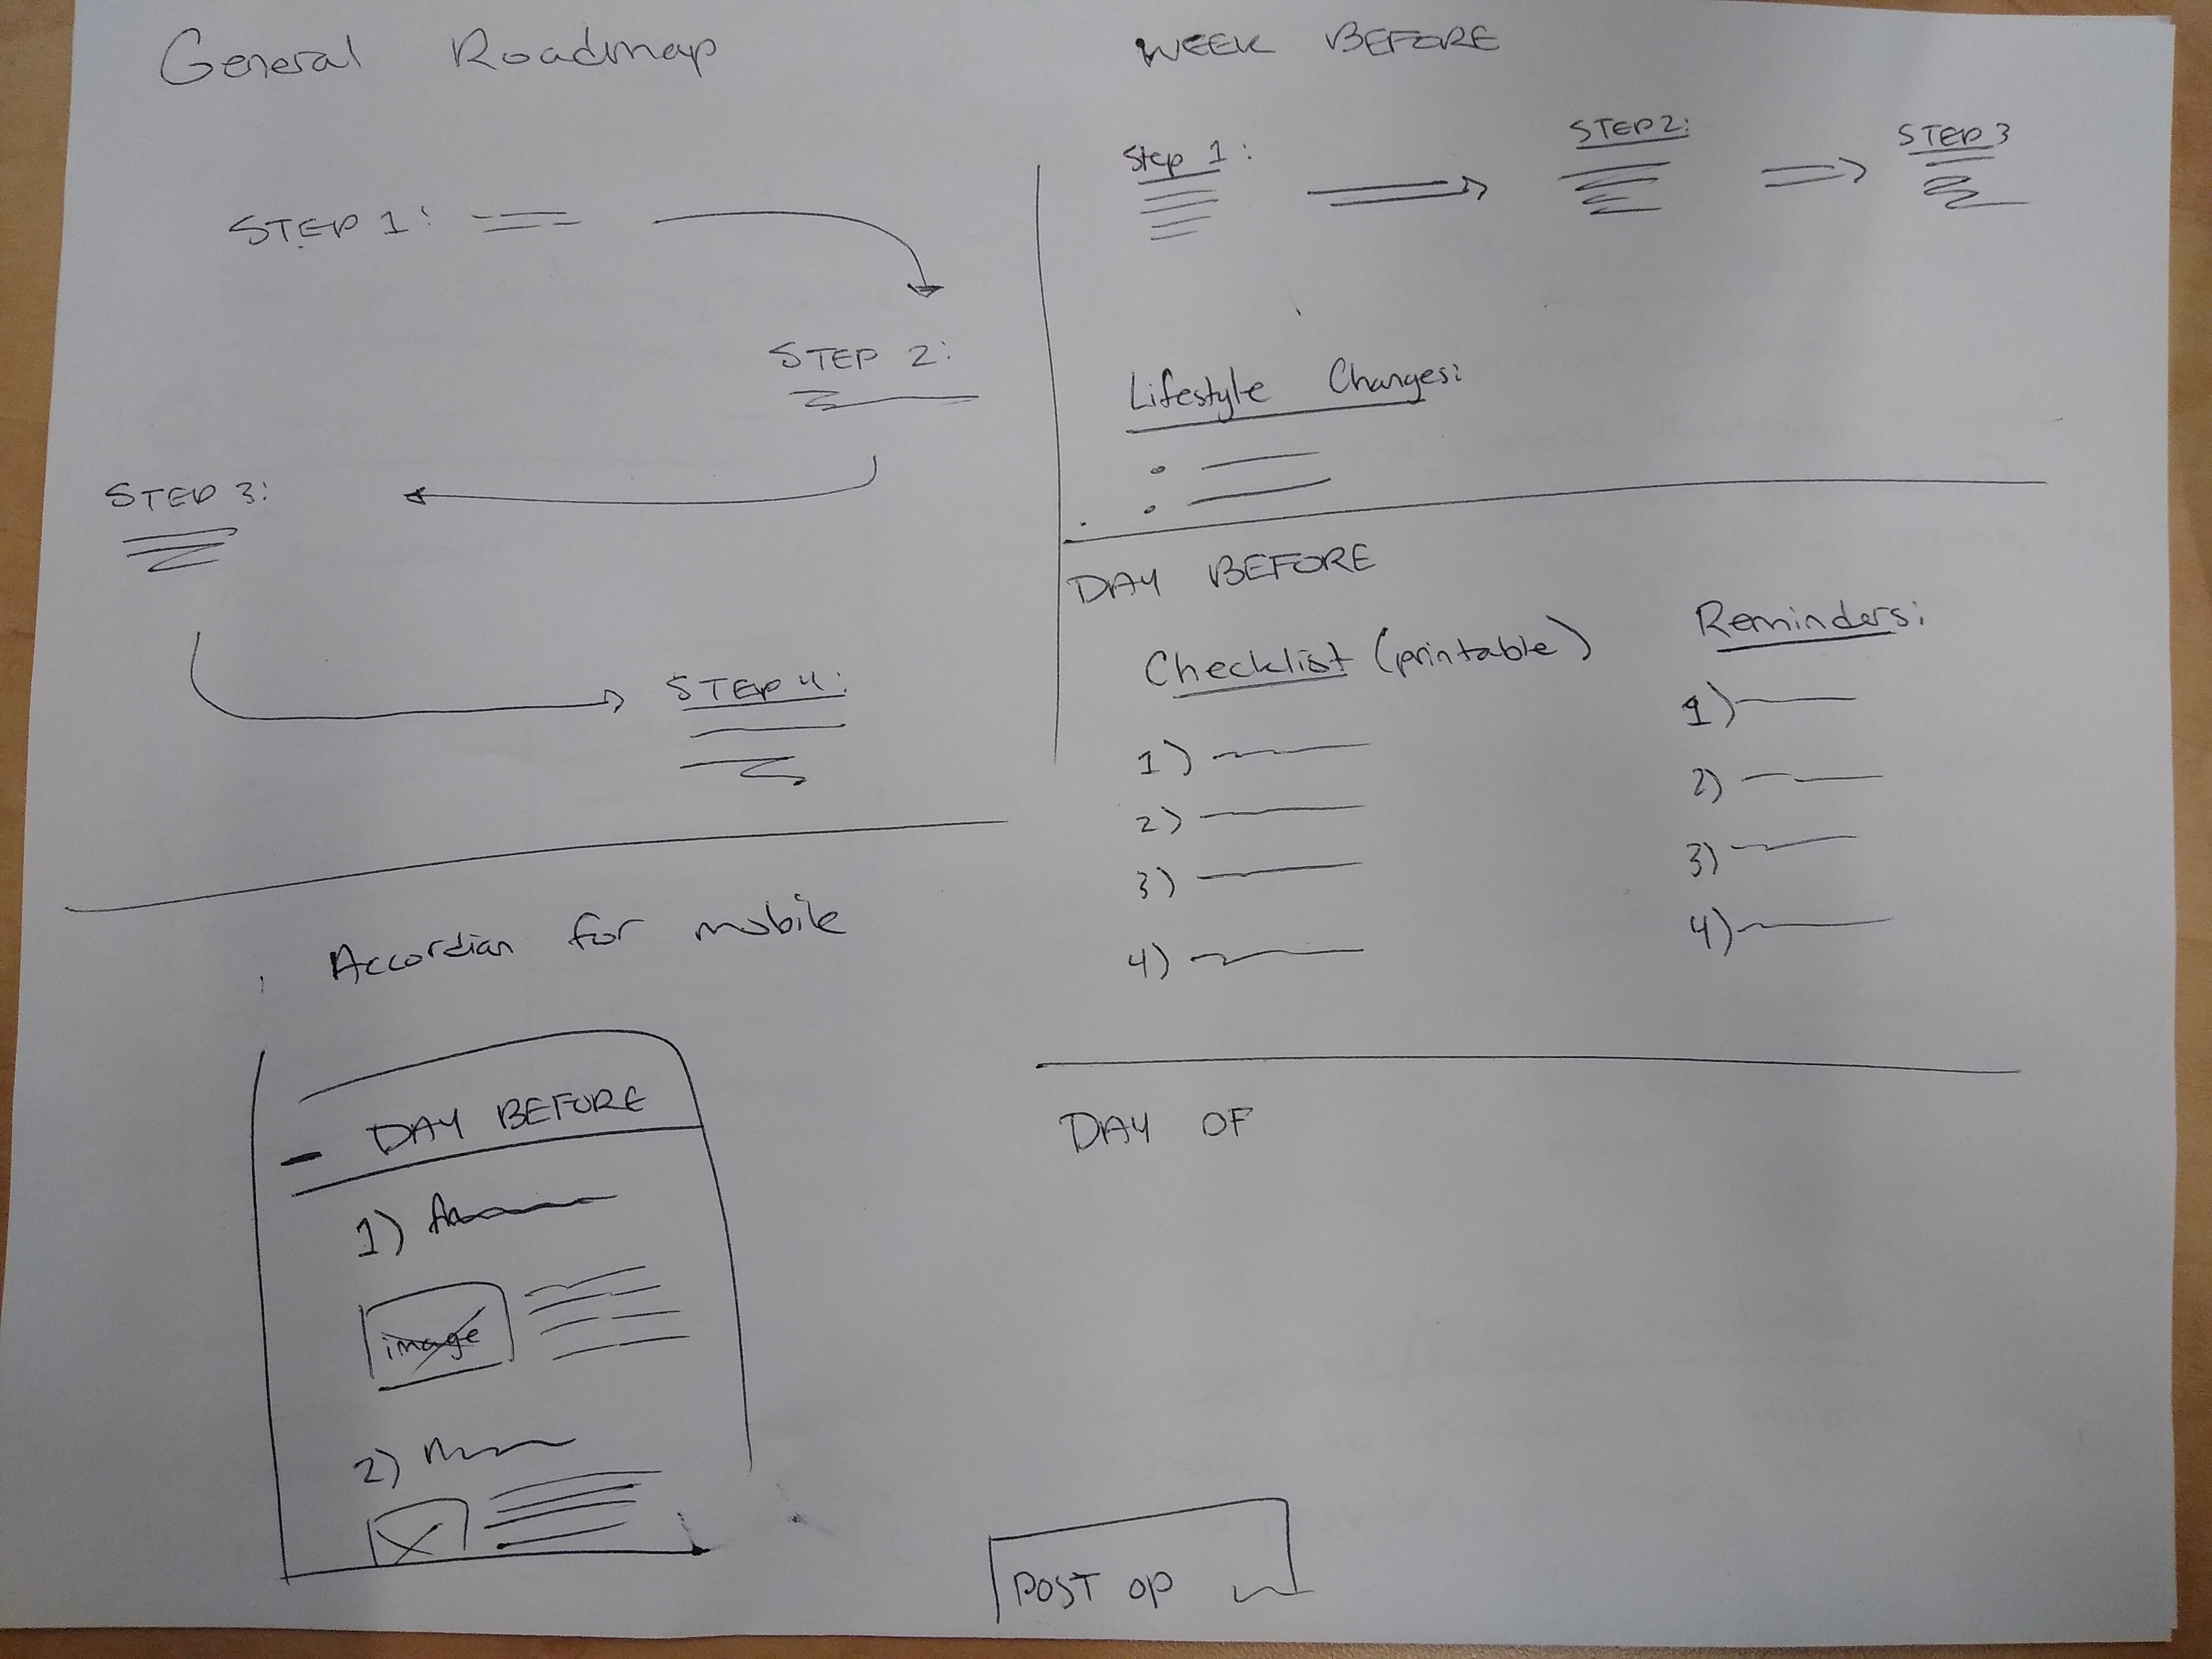 General Roadmap
STEP 1:
STEP 2:
STEP 3:
STEP 4:
Accordian for mobile
DAY BEFORE
1)
image
2)
WEEK BEFORE
Step 1:
STEP 2:
STEP 3
Lifestyle Changes:
DAY BEFORE
Checklist (printable)
1)
2)
3)
4)
Reminders:
1)
2)
3)
4)
DAY OF
POST OP